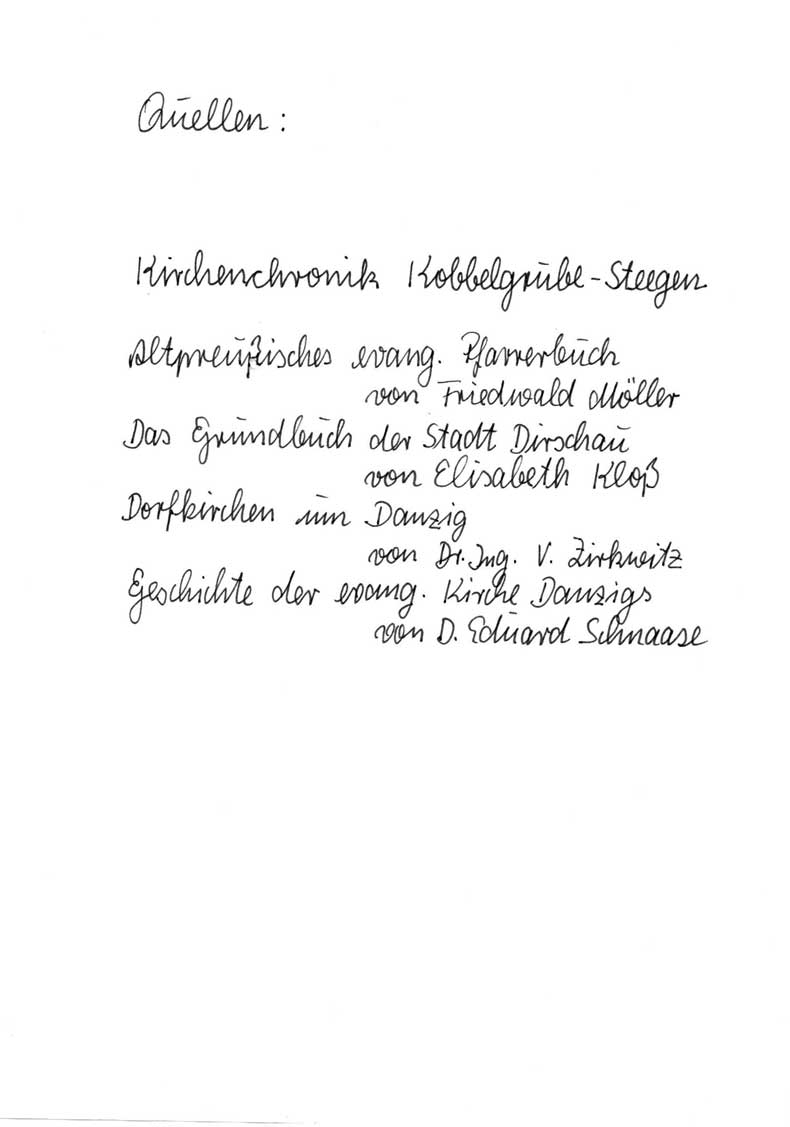 Quellen:
Kirchenchronik Kobbelgrube-Steegen
Altpreußisches evang. Pfarrerbuch
von Friedwald Möller
Das Grundbuch der Stadt Dirschau
von Elisabeth Kloß
Dorfkirchen um Danzig
von Dr. Ing. V. Zirkwitz
Geschichte der evang. Kirche Danzigs
von D. Eduard Schnaase